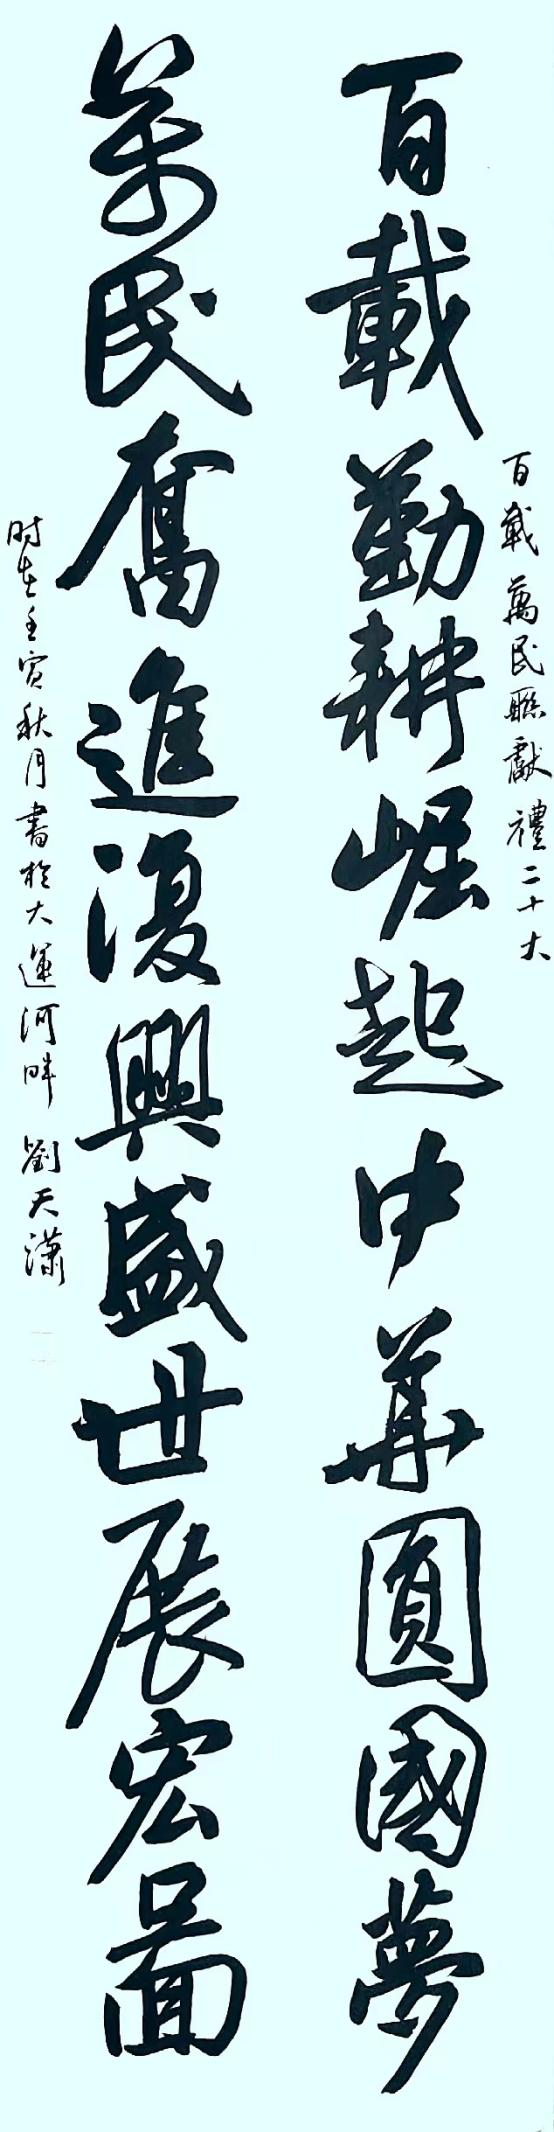 百載萬民聯獻禮二十大
百載勤耕崛起中華圓國夢
萬民奮進復興盛世展宏圖
时在壬寅秋月書於大運河畔劉天瀟